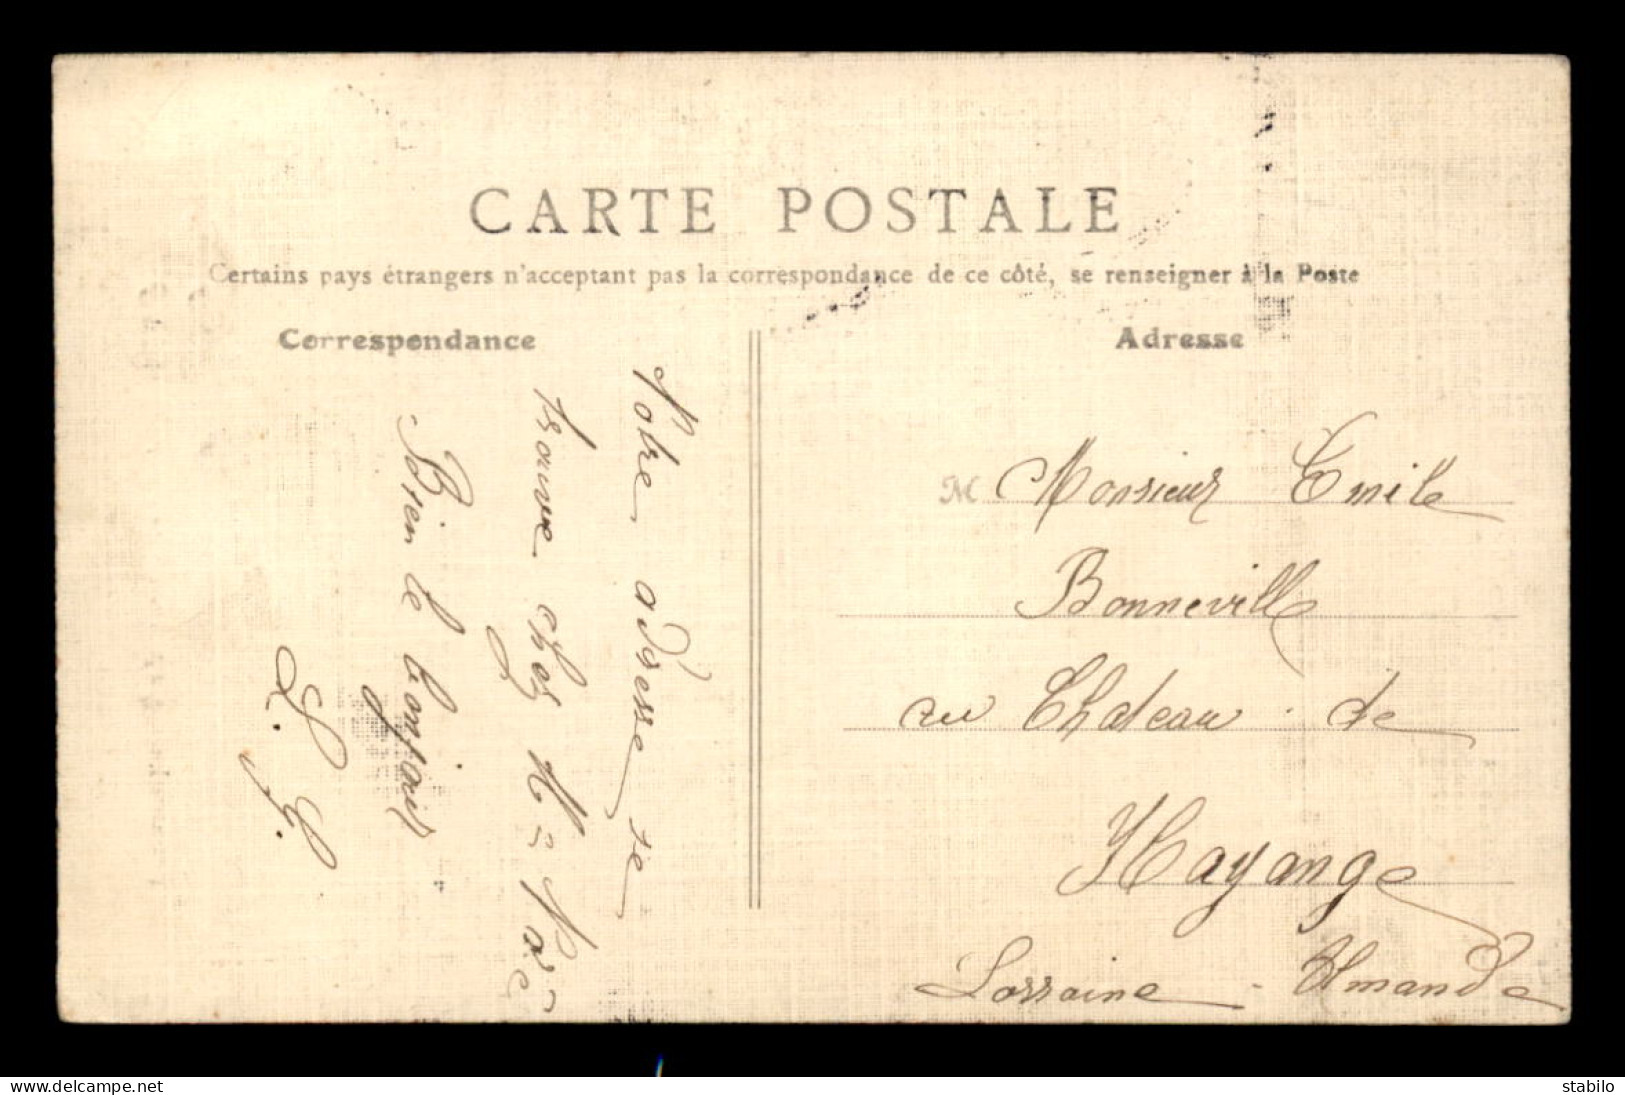 CARTE POSTALE
Certains pays étrangers n'acceptant pas la correspondance de ce côté, se renseigner à la Poste
Correspondance
Adresse
Votre adresse se
trouve chez M=
Bien le bonjour
L. G.
M Monsieur Emile
Bonneville
au Château de
Hayange
Lorraine - Almande
delcampe.net
stabilo